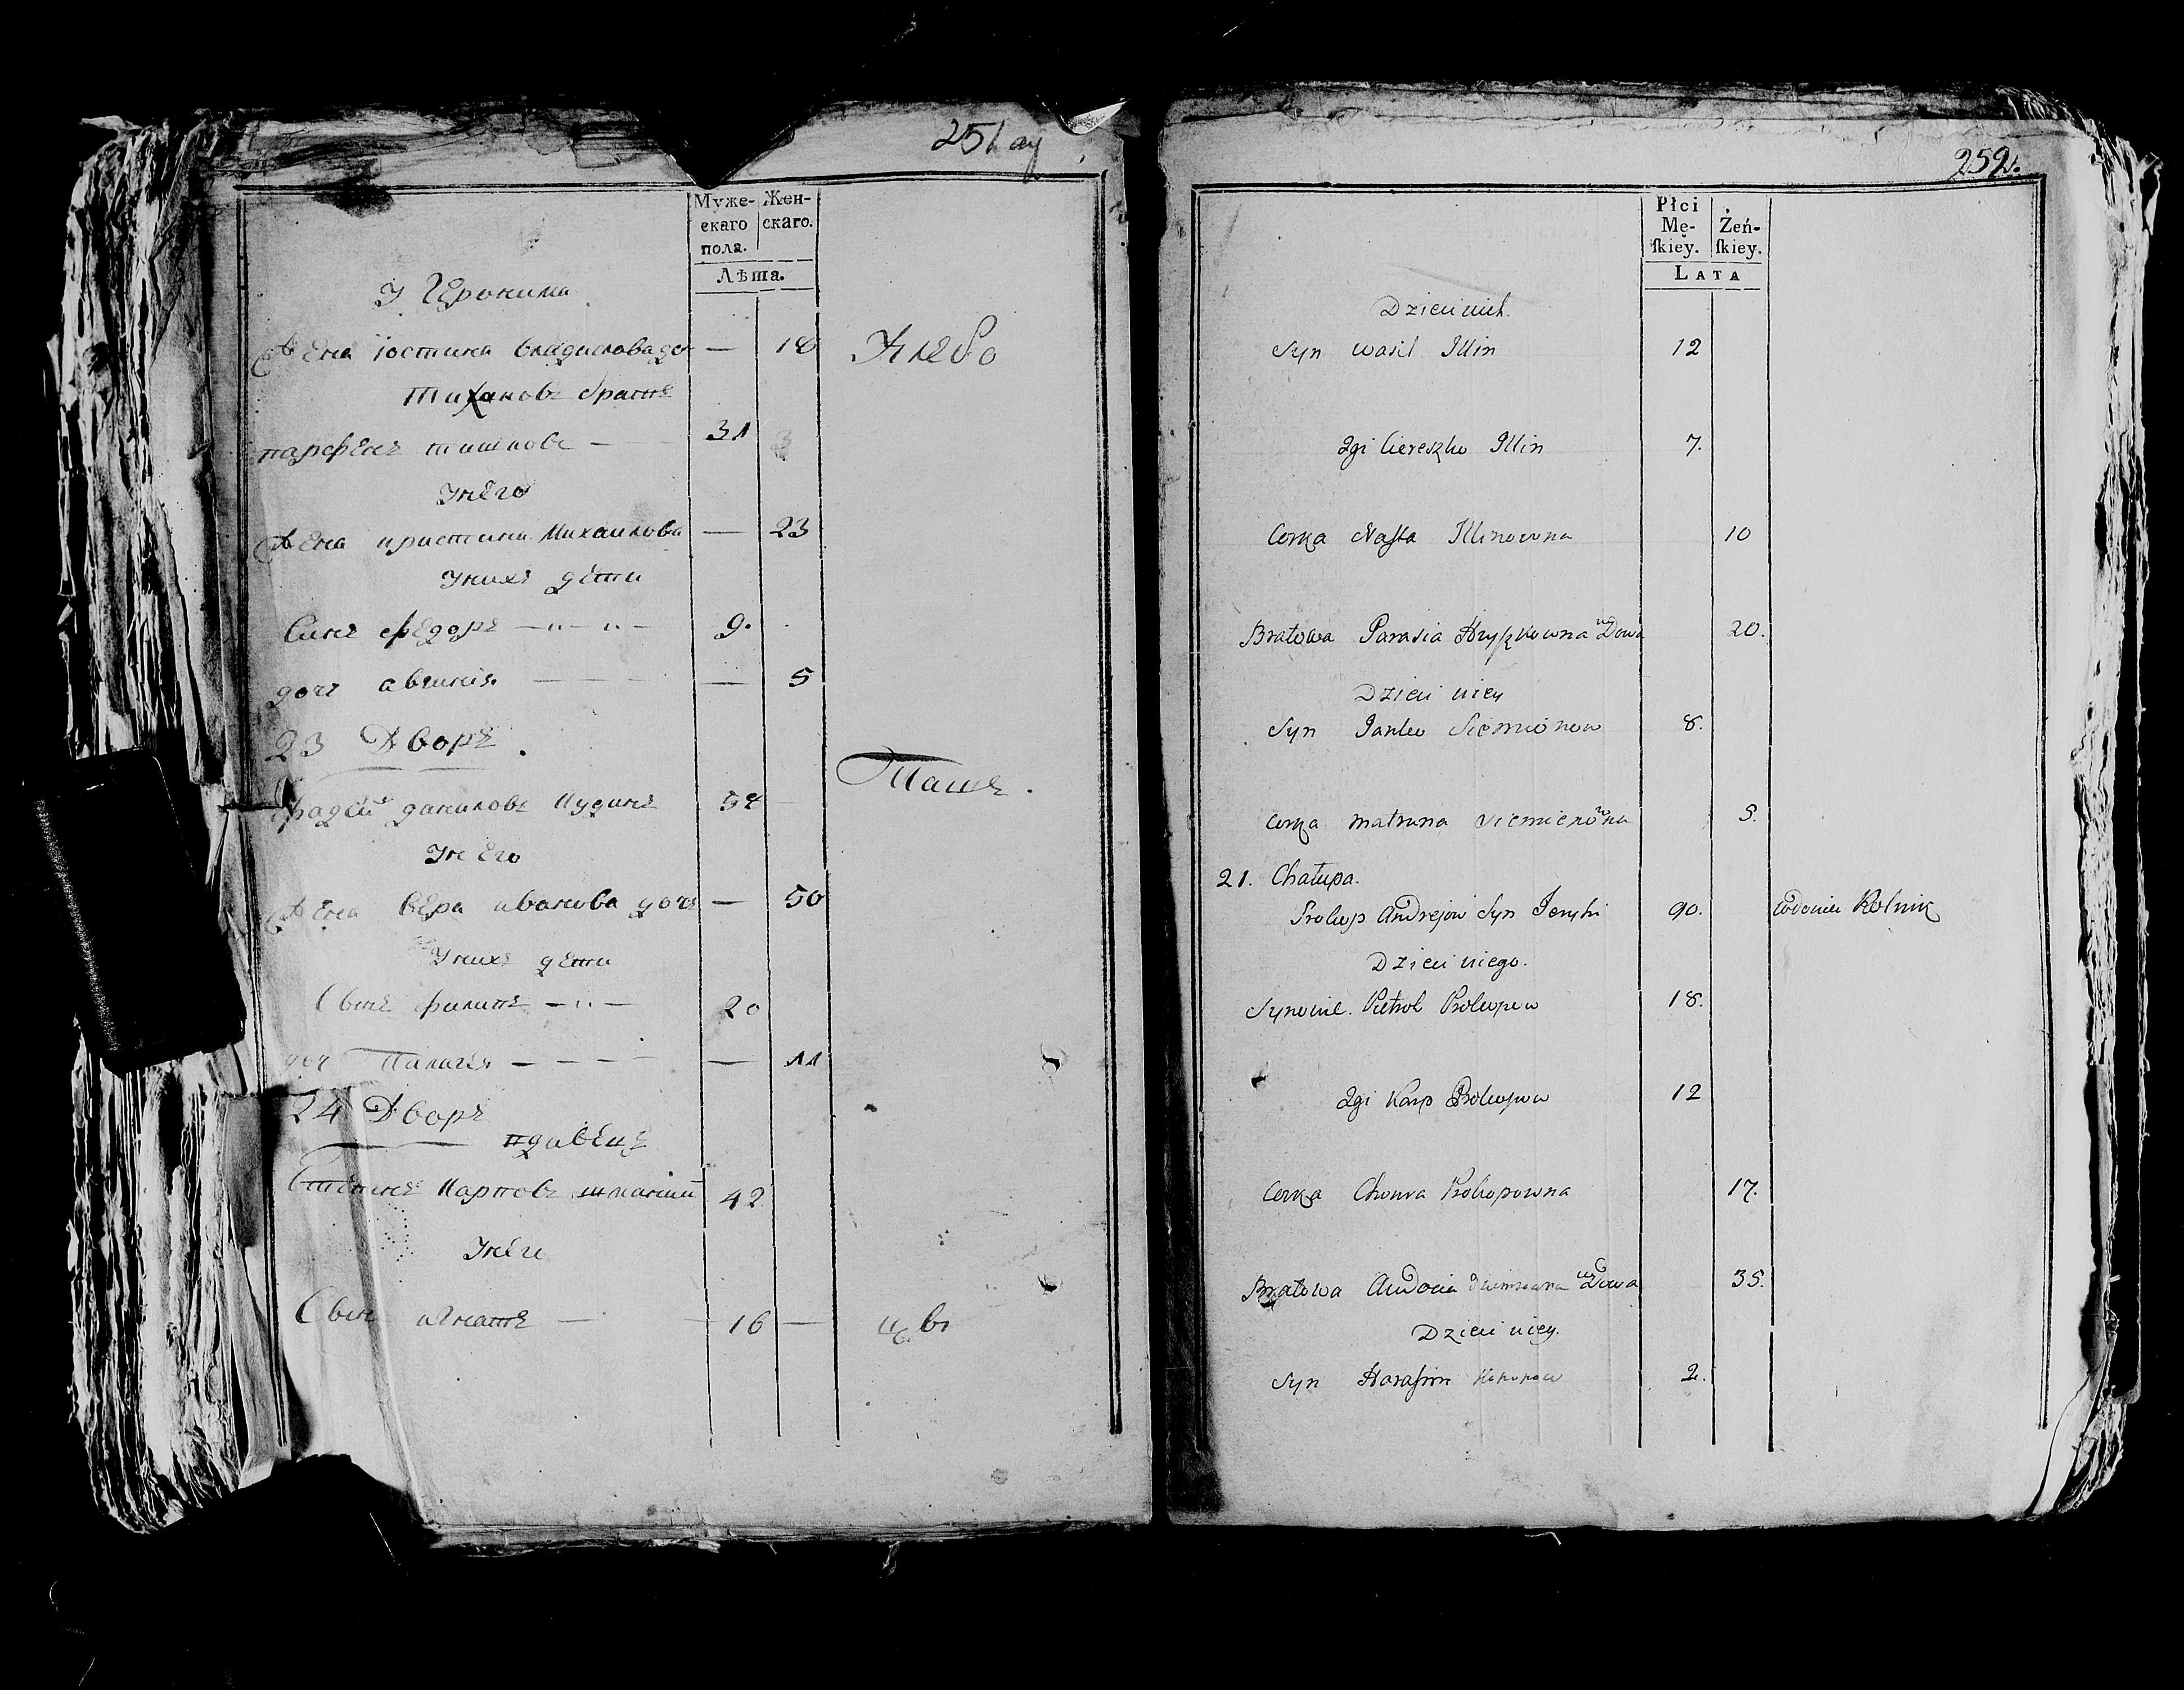 251 ау
Муже-
скаго
пола.
Жен-
скаго.
Лѣта.
У Геронима
Жена Юстина Владислова до — 18 Хлебо
Тиханове брате
парфене тишкове — 31
У него
Жена кристина Михаилова — 23
У нихъ дети
Сине федоре 9.
доче авгиния — 5
23 Дворе.
фадей данилове Кудине 58 Таше.
У него
Жена вера иванова доче — 50
У нихъ дети
Сыне филипе 20
доч Палагея — 11
24 Дворе
Степане Карпове 42
У него
Сыне игнате — 16 —
252.
Płci
Mę-
ſkiey.
Żeń-
ſkiey.
LATA
Dzieci nich.
Syn Wasil Illin 12
2gi Ciereszko Illin 7.
Corka Nasta Illinowna 10
Bratowa Parasia Hryszkowna wDowa 20.
Dzieci niey
Syn Janko Siemionow 8.
Corka Matruna Siemienowna 5.
21. Chałupa.
Prokop Andrejow Syn 90. Rolnik
Dzieci niego.
Synowie. Pietrok Prokopow 18.
2gi Karp Prokopow 12
Corka Chowra Prokopowna 17.
Bratowa Audocia wDowa 35.
Dzieci niey.
Syn Harasim 2.